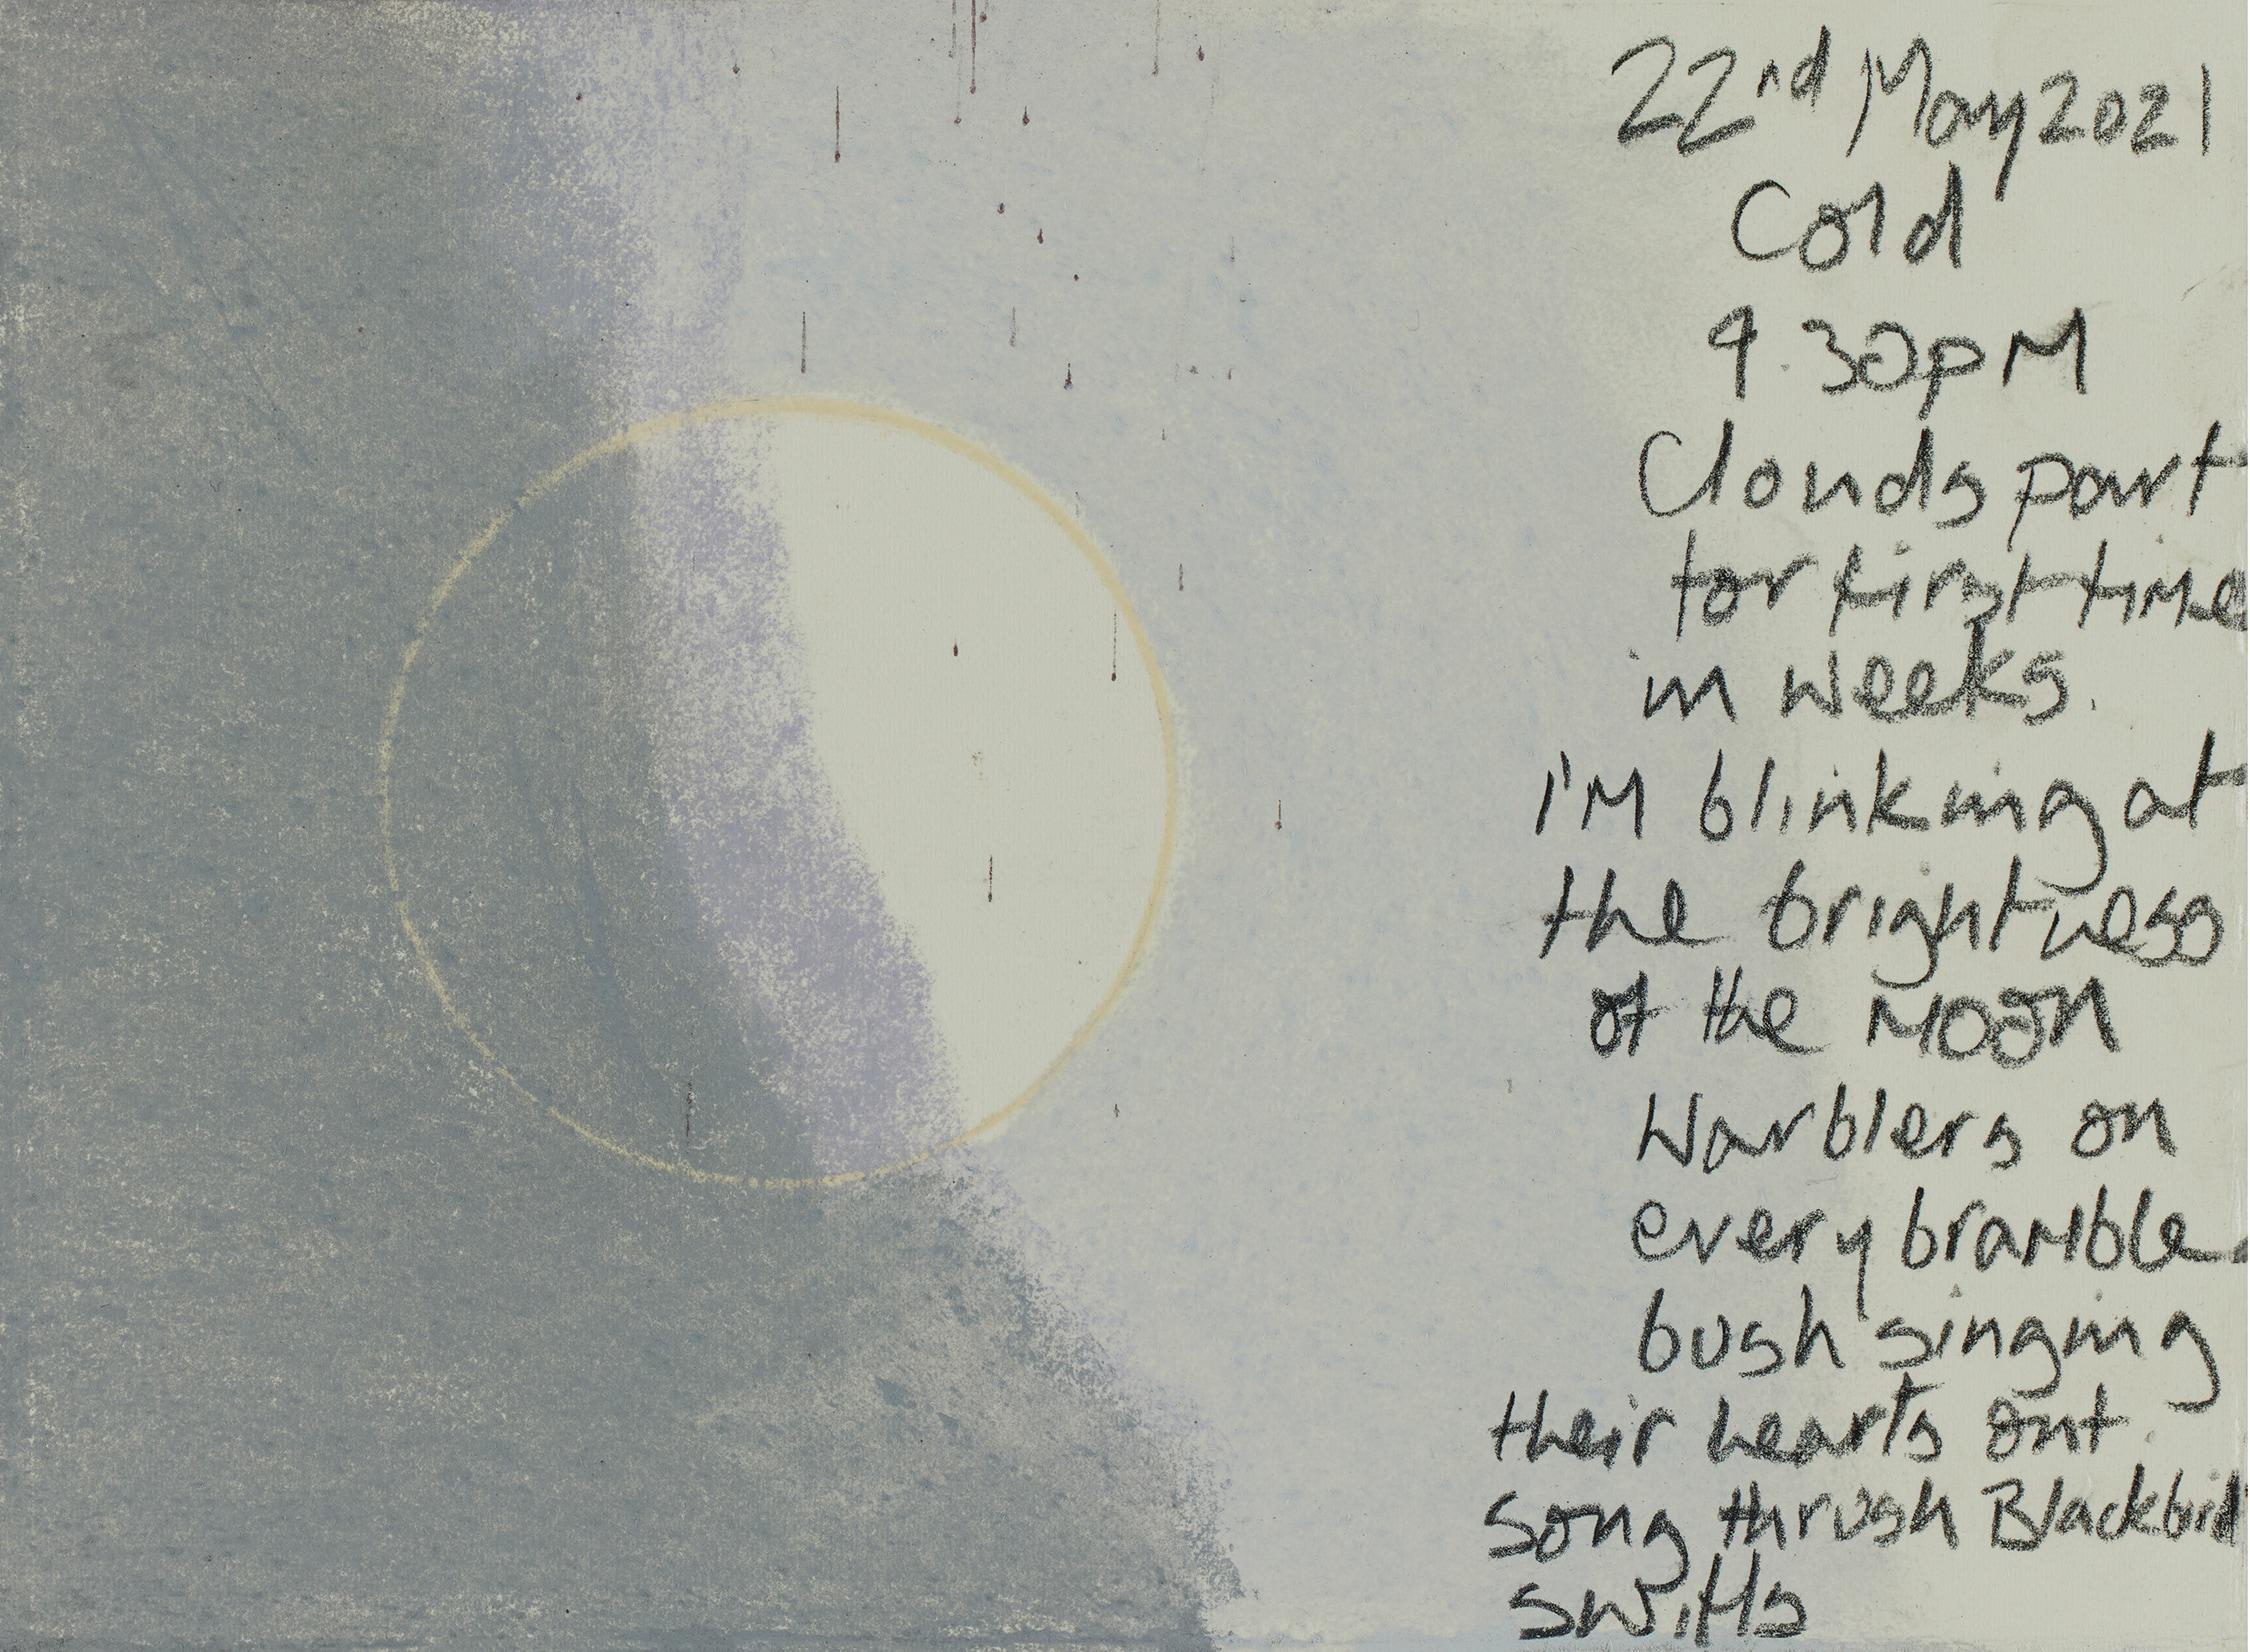 22nd May 2021
Cold
9.30pM
Clouds part
for first time
in weeks.
I'M blinking at
the brightness
of the MOON
Warblers on
every bramble
bush singing
their hearts out.
Song thrush Blackbird
swifts